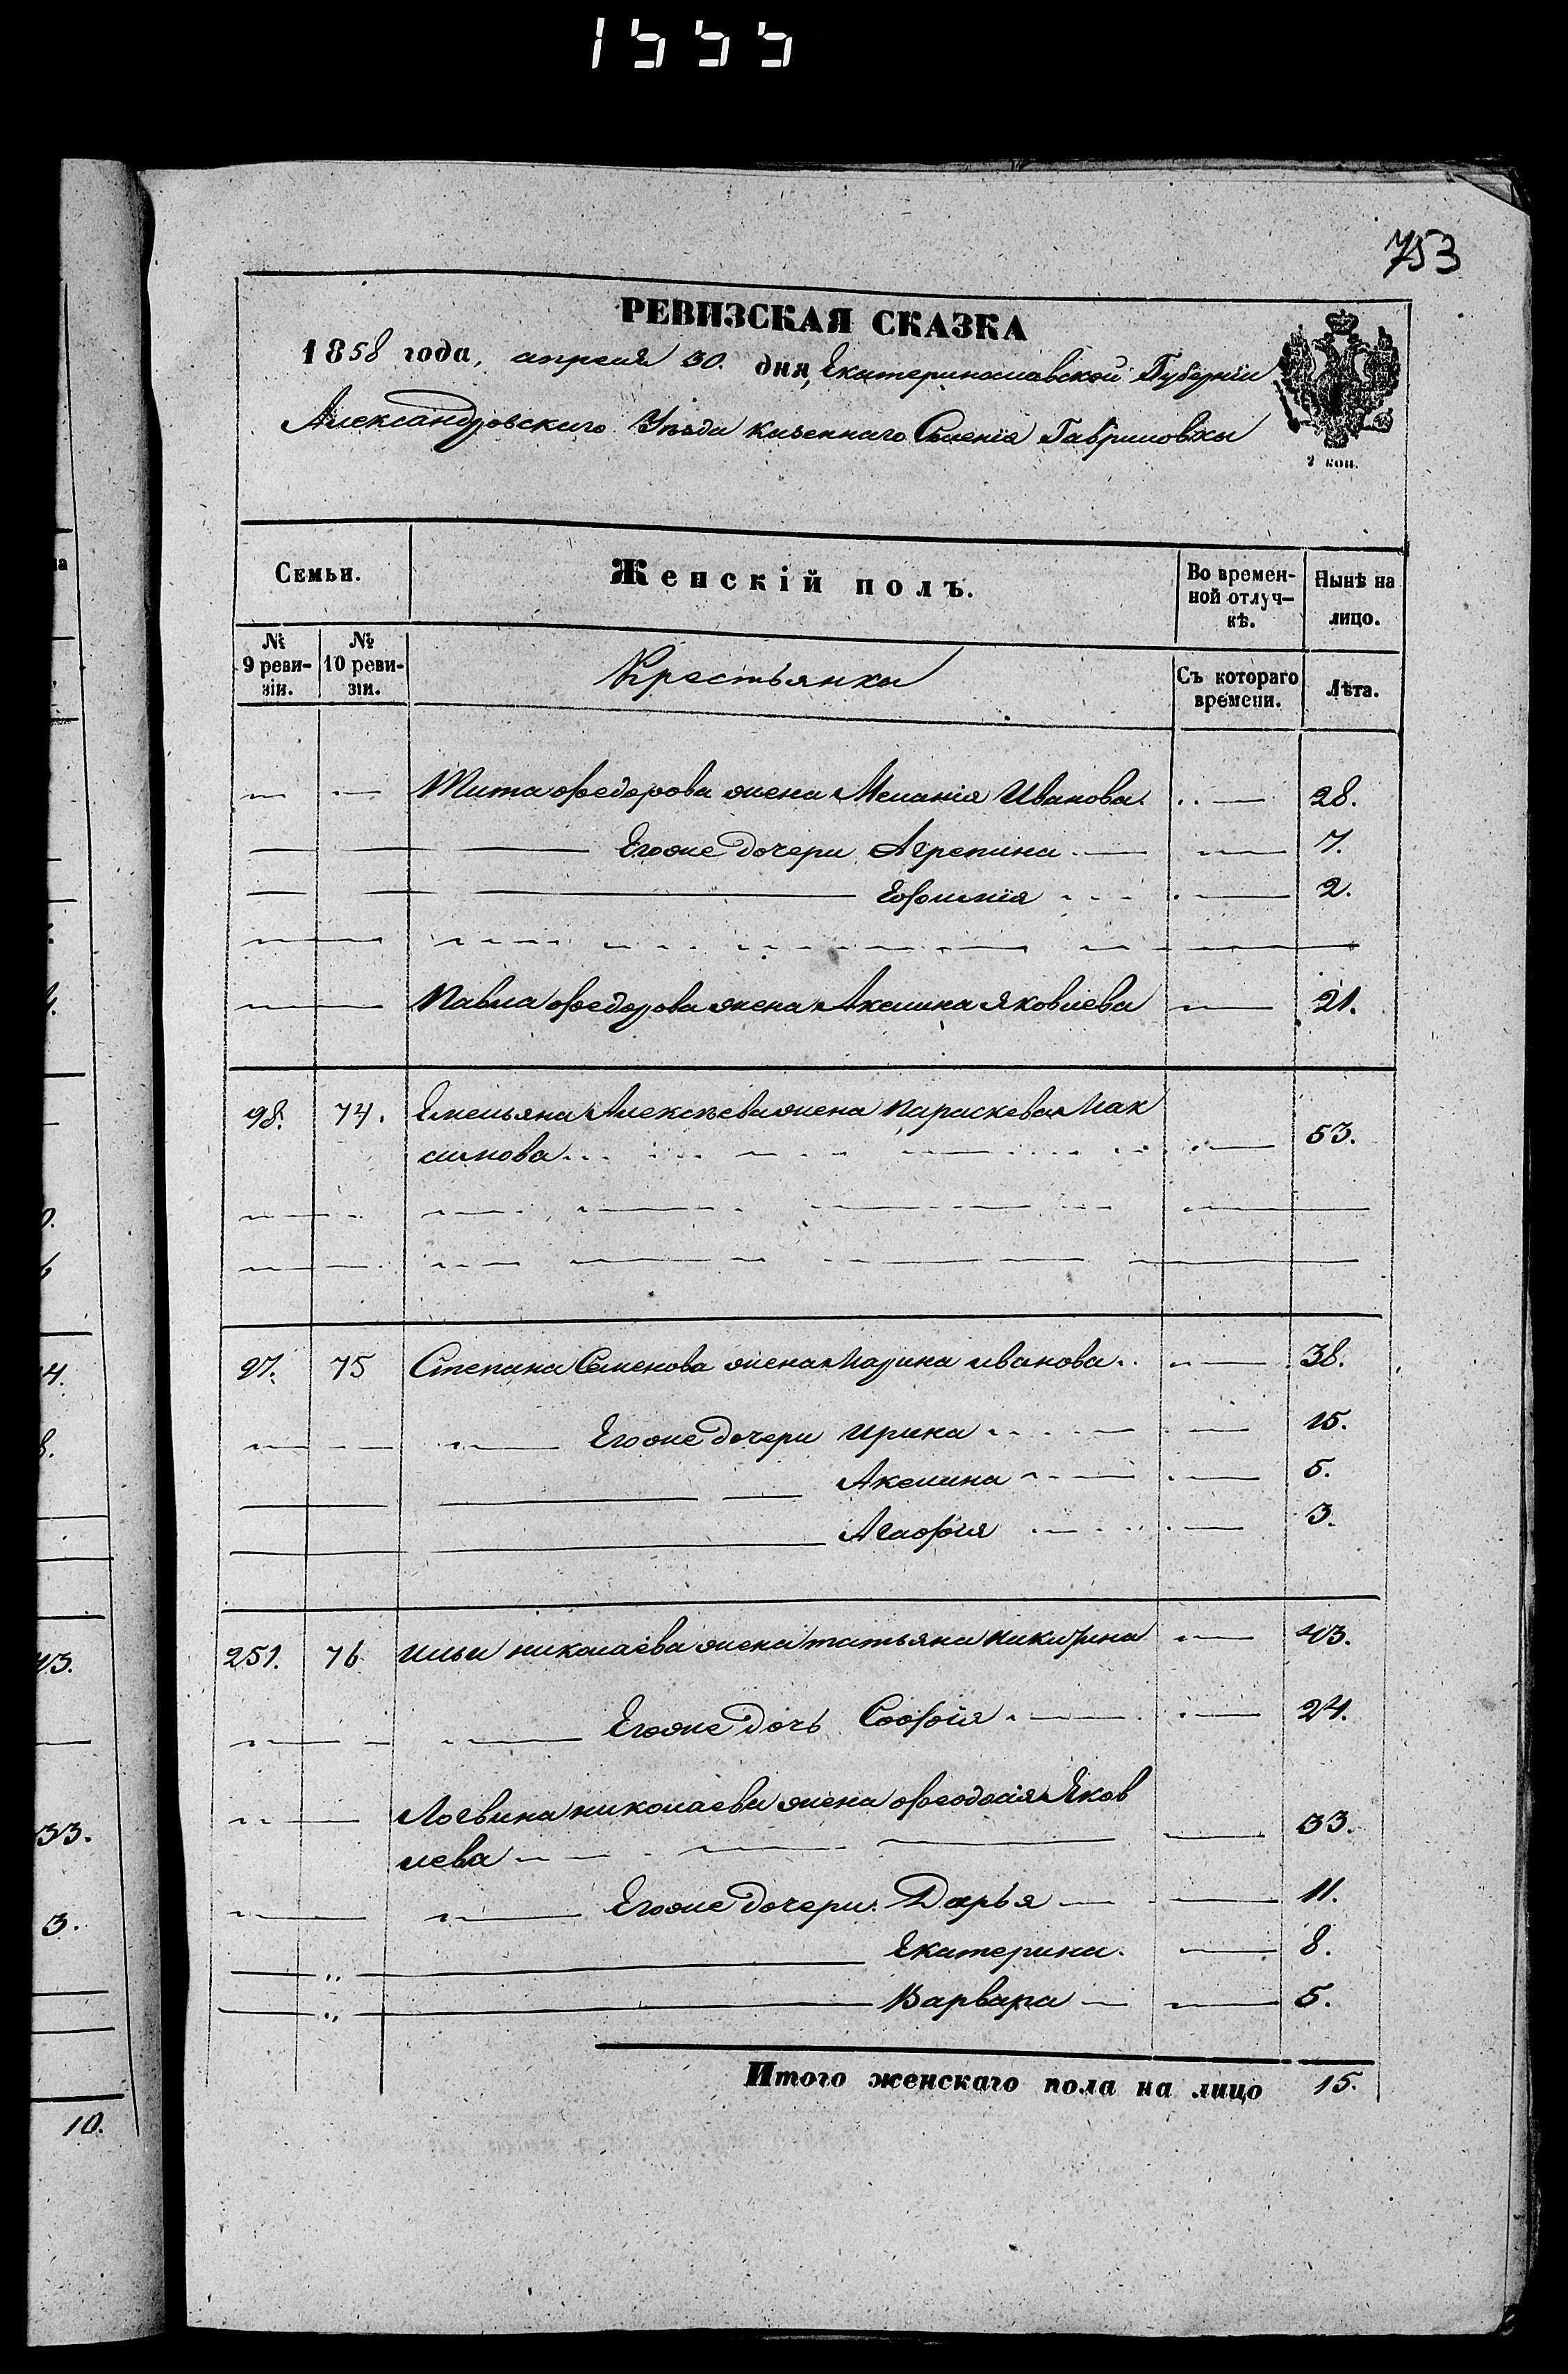 1555
753
РЕВИЗСКАЯ СКАЗКА
1858 года, апреля 30. дня, Екатеринославской Губерніи
Александровскаго Уѣзда казеннаго Селенія Гавриловки
2 коп.
Семьи. Женскій полъ. Во времен- Нынѣ на
ной отлуч- лицо.
кѣ.
№ №
9 реви- 10 реви- Крестьянки Съ котораго Лѣта.
зіи. зіи. времени.
Тита Федорова жена Меланія Иванова. 28.
Егоже дочери Агрепина 7.
Ефимія 2.
Павла Федорова жена Акелина Яковлева 21.
98. 74. Емельяна Алексѣева жена Параскева Мак
симова 53.
97. 75 Степана Семенова жена Марина Иванова 38.
Егоже дочери Ирина 15.
Акелина 5.
Агафія 3.
251. 76 Ильи Николаева жена Татьяна Никитина 43.
Егоже дочь Софія 24.
Логвина Николаева жена Феодосія Яков
лева 33.
Егоже дочери Дарья 11.
Екатерина. 8.
Варвара 5.
Итого женскаго пола на лицо 15.
33.
3.
10.